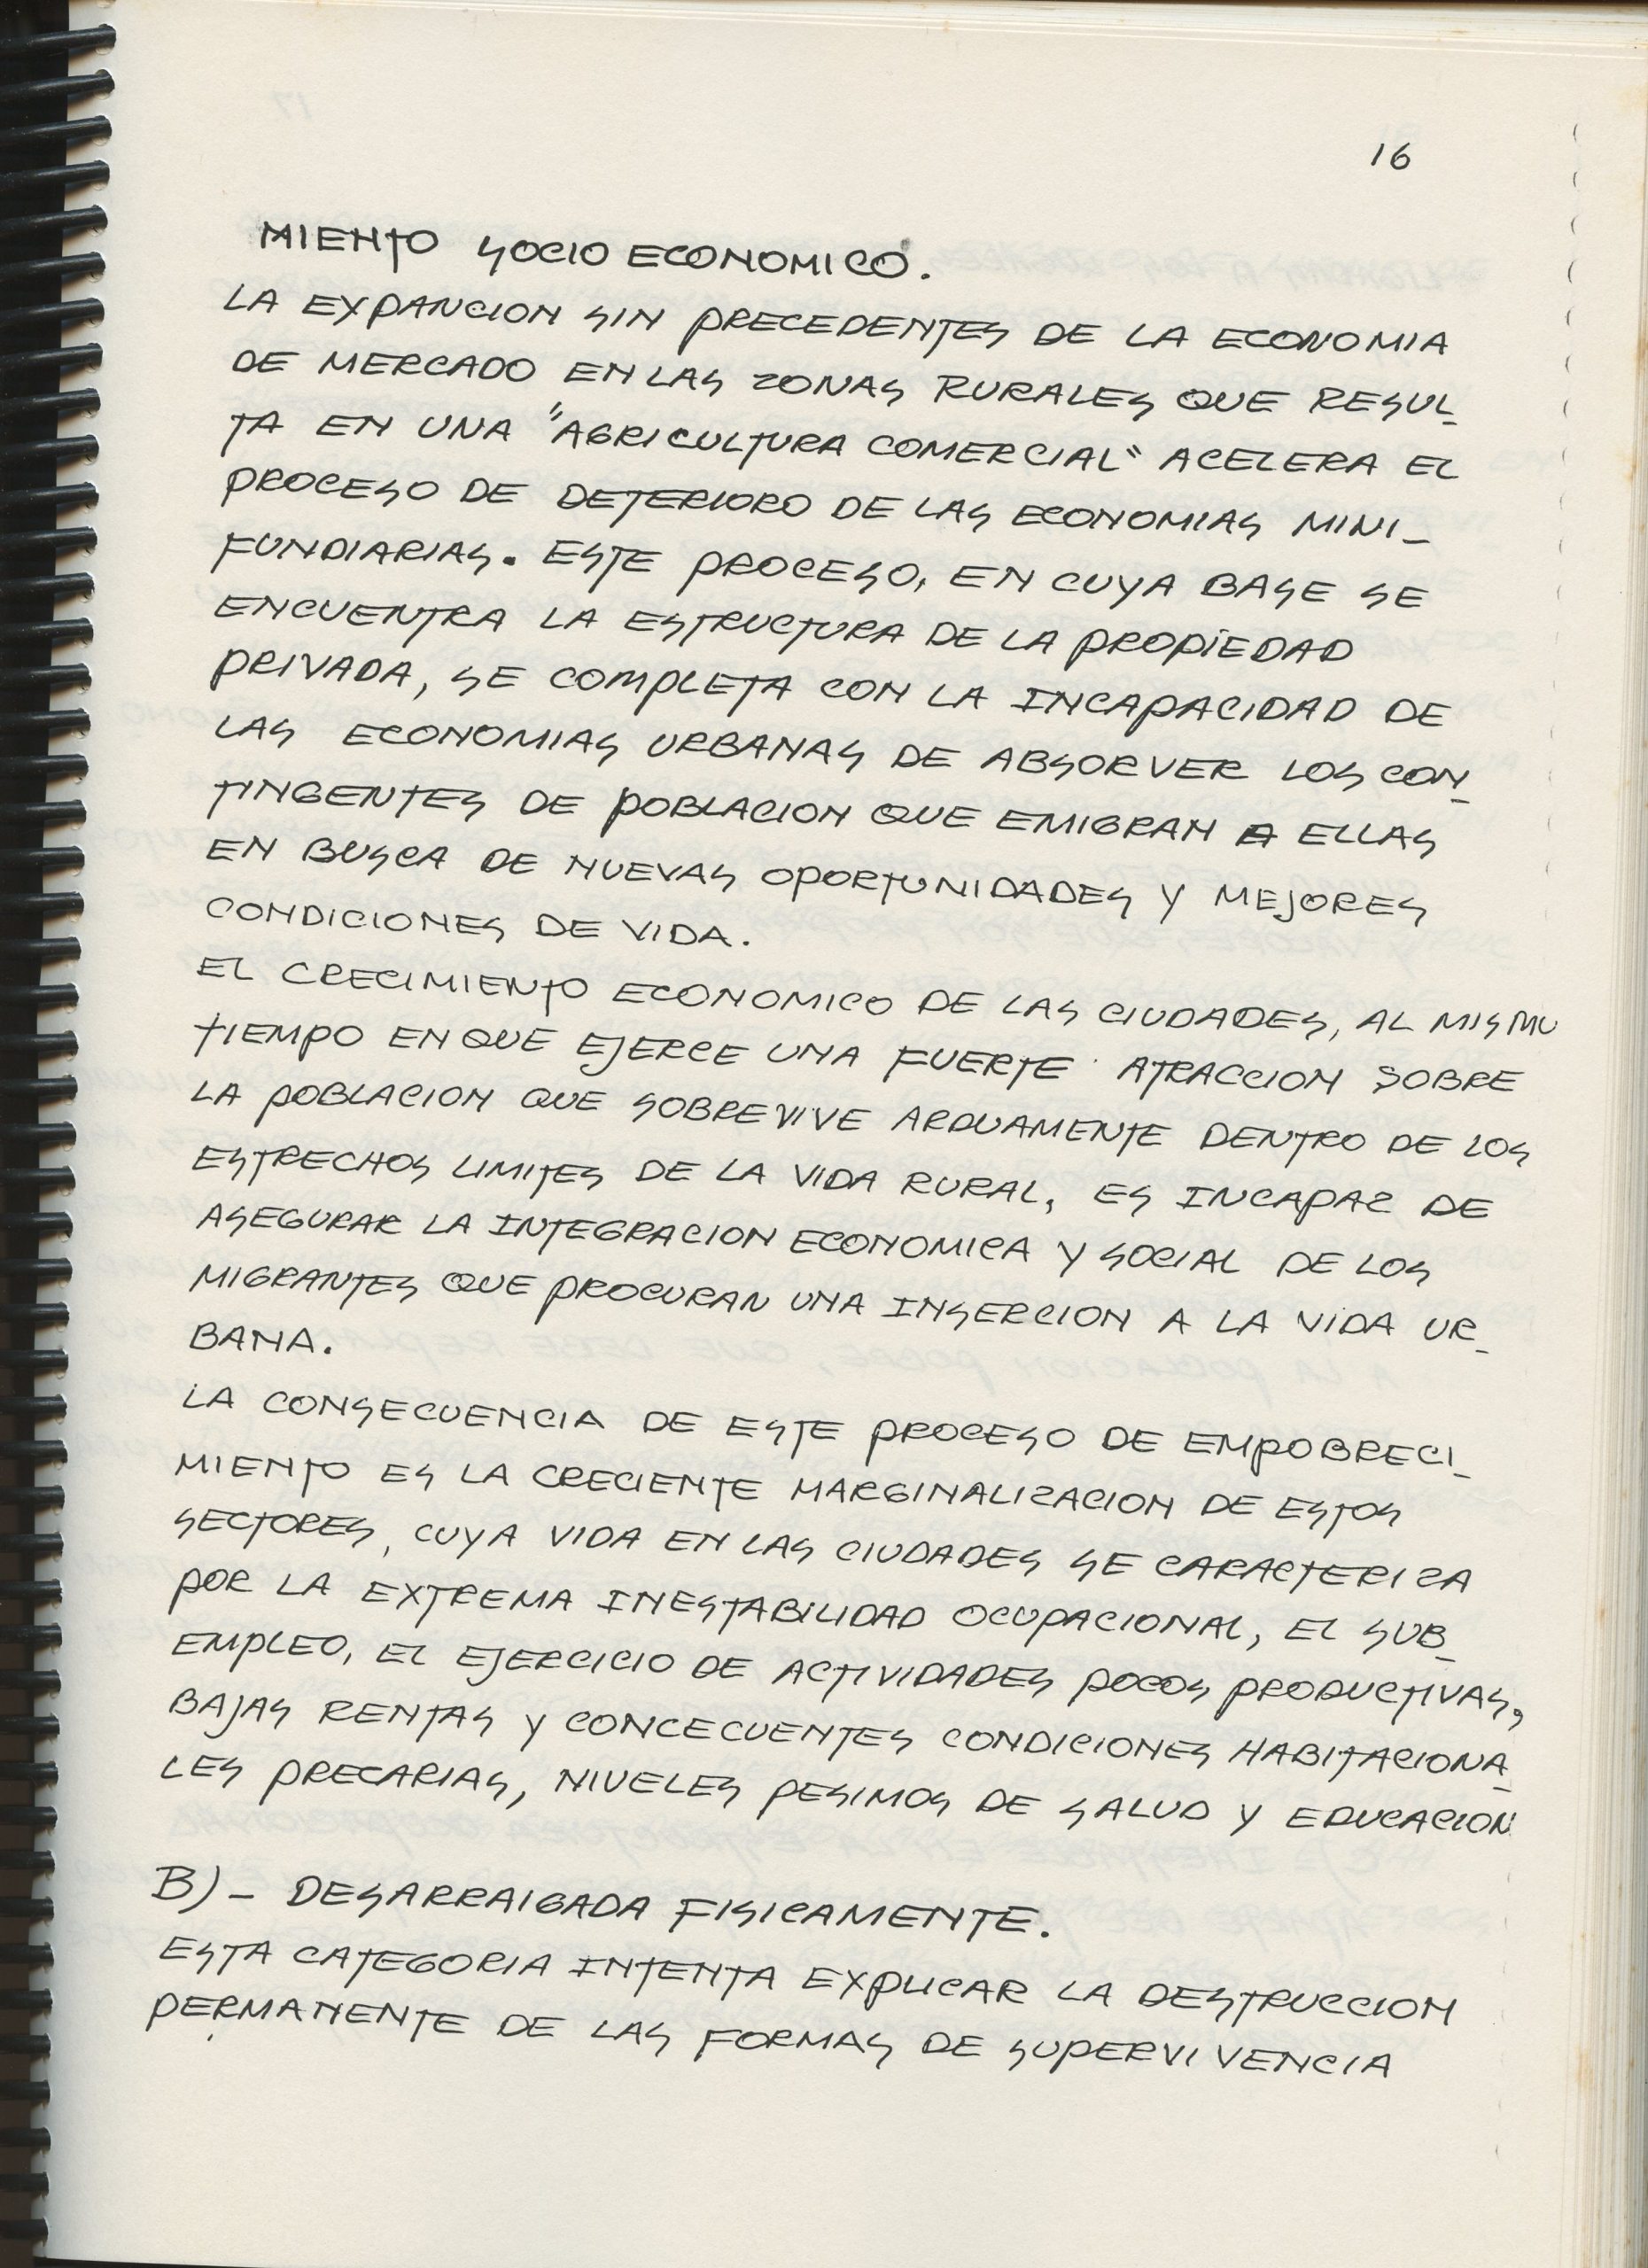 16
MIENTO SOCIO ECONOMICO.
LA EXPANCION SIN PRECEDENTES DE LA ECONOMIA
DE MERCADO EN LAS ZONAS RURALES QUE RESUL_
TA EN UNA "AGRICULTURA COMERCIAL" ACELERA EL
PROCESO DE DETERIORO DE LAS ECONOMIAS MINI_
FUNDIARIAS. ESTE PROCESO, EN CUYA BASE SE
ENCUENTRA LA ESTRUCTURA DE LA PROPIEDAD
PRIVADA, SE COMPLETA CON LA INCAPACIDAD DE
LAS ECONOMIAS URBANAS DE ABSORVER LOS CON_
TINGENTES DE POBLACION QUE EMIGRAN A ELLAS
EN BUSCA DE NUEVAS OPORTUNIDADES Y MEJORES
CONDICIONES DE VIDA.
EL CRECIMIENTO ECONOMICO DE LAS CIUDADES, AL MISMO
TIEMPO EN QUE EJERCE UNA FUERTE ATRACCION SOBRE
LA POBLACION QUE SOBREVIVE ARDUAMENTE DENTRO DE LOS
ESTRECHOS LIMITES DE LA VIDA RURAL, ES INCAPAZ DE
ASEGURAR LA INTEGRACION ECONOMICA Y SOCIAL DE LOS
MIGRANTES QUE PROCURAN UNA INSERCION A LA VIDA UR_
BANA.
LA CONSECUENCIA DE ESTE PROCESO DE EMPOBRECI_
MIENTO ES LA CRECIENTE MARGINALIZACION DE ESTOS
SECTORES, CUYA VIDA EN LAS CIUDADES SE CARACTERIZA
POR LA EXTREMA INESTABILIDAD OCUPACIONAL, EL SUB_
EMPLEO, EL EJERCICIO DE ACTIVIDADES POCOS PRODUCTIVAS,
BAJAS RENTAS Y CONCECUENTES CONDICIONES HABITACIONA_
LES PRECARIAS, NIVELES PESIMOS DE SALUD Y EDUCACION
B)_ DESARRAIGADA FISICAMENTE.
ESTA CATEGORIA INTENTA EXPLICAR LA DESTRUCCION
PERMANENTE DE LAS FORMAS DE SUPERVIVENCIA